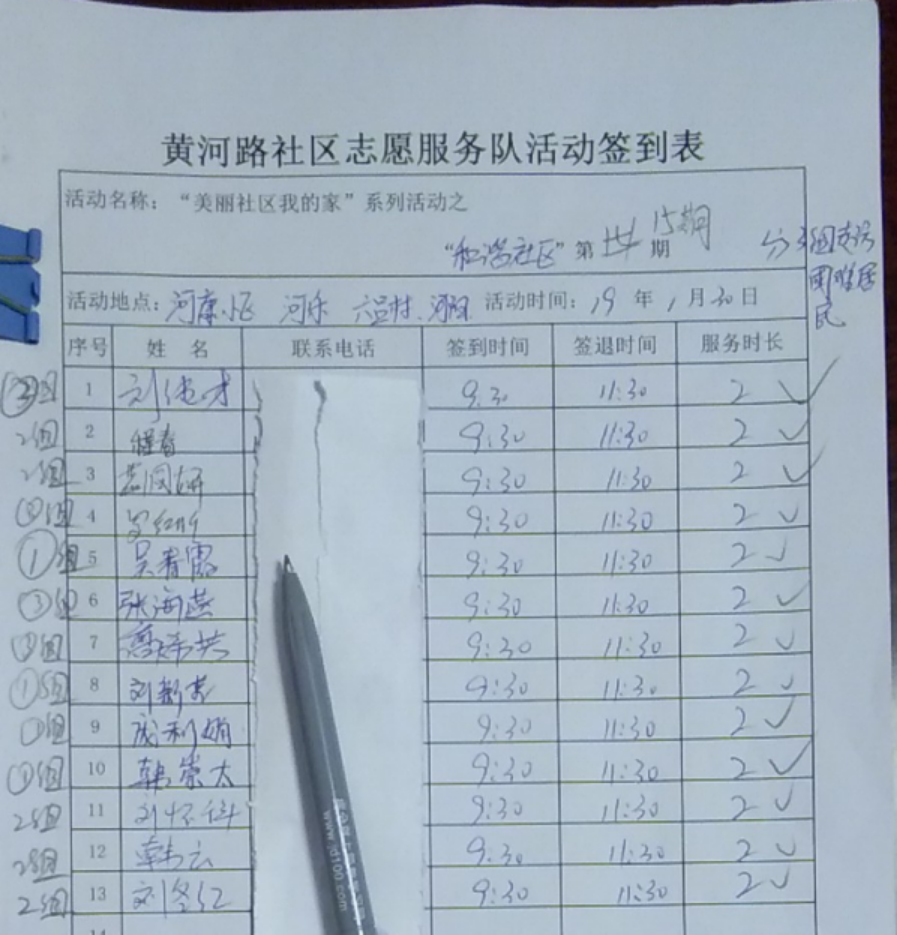 黄河路社区志愿服务队活动签到表
活动名称：“美丽社区我的家”系列活动之
“和谐社区”第 15期 期
分3组
困难居
民
活动地点：河康小区 河乐 活动时间：19年1月30日
序号 姓 名 联系电话 签到时间 签退时间 服务时长
③组 1 9:30 11:30 2 ✓
2组 2 程春 9:30 11:30 2 ✓
2组 3 9:30 11:30 2 ✓
组 4 9:30 11:30 2 ✓
①组 5 吴春霞 9:30 11:30 2 ✓
③组 6 张海燕 9:30 11:30 2 ✓
组 7 9:30 11:30 2 ✓
①组 8 刘新 9:30 11:30 2 ✓
①组 9 成利娟 9:30 11:30 2 ✓
组 10 韩崇太 9:30 11:30 2 ✓
2组 11 9:30 11:30 2 ✓
2组 12 韩云 9:30 11:30 2 ✓
2组 13 刘冬红 9:30 11:30 2 ✓
14